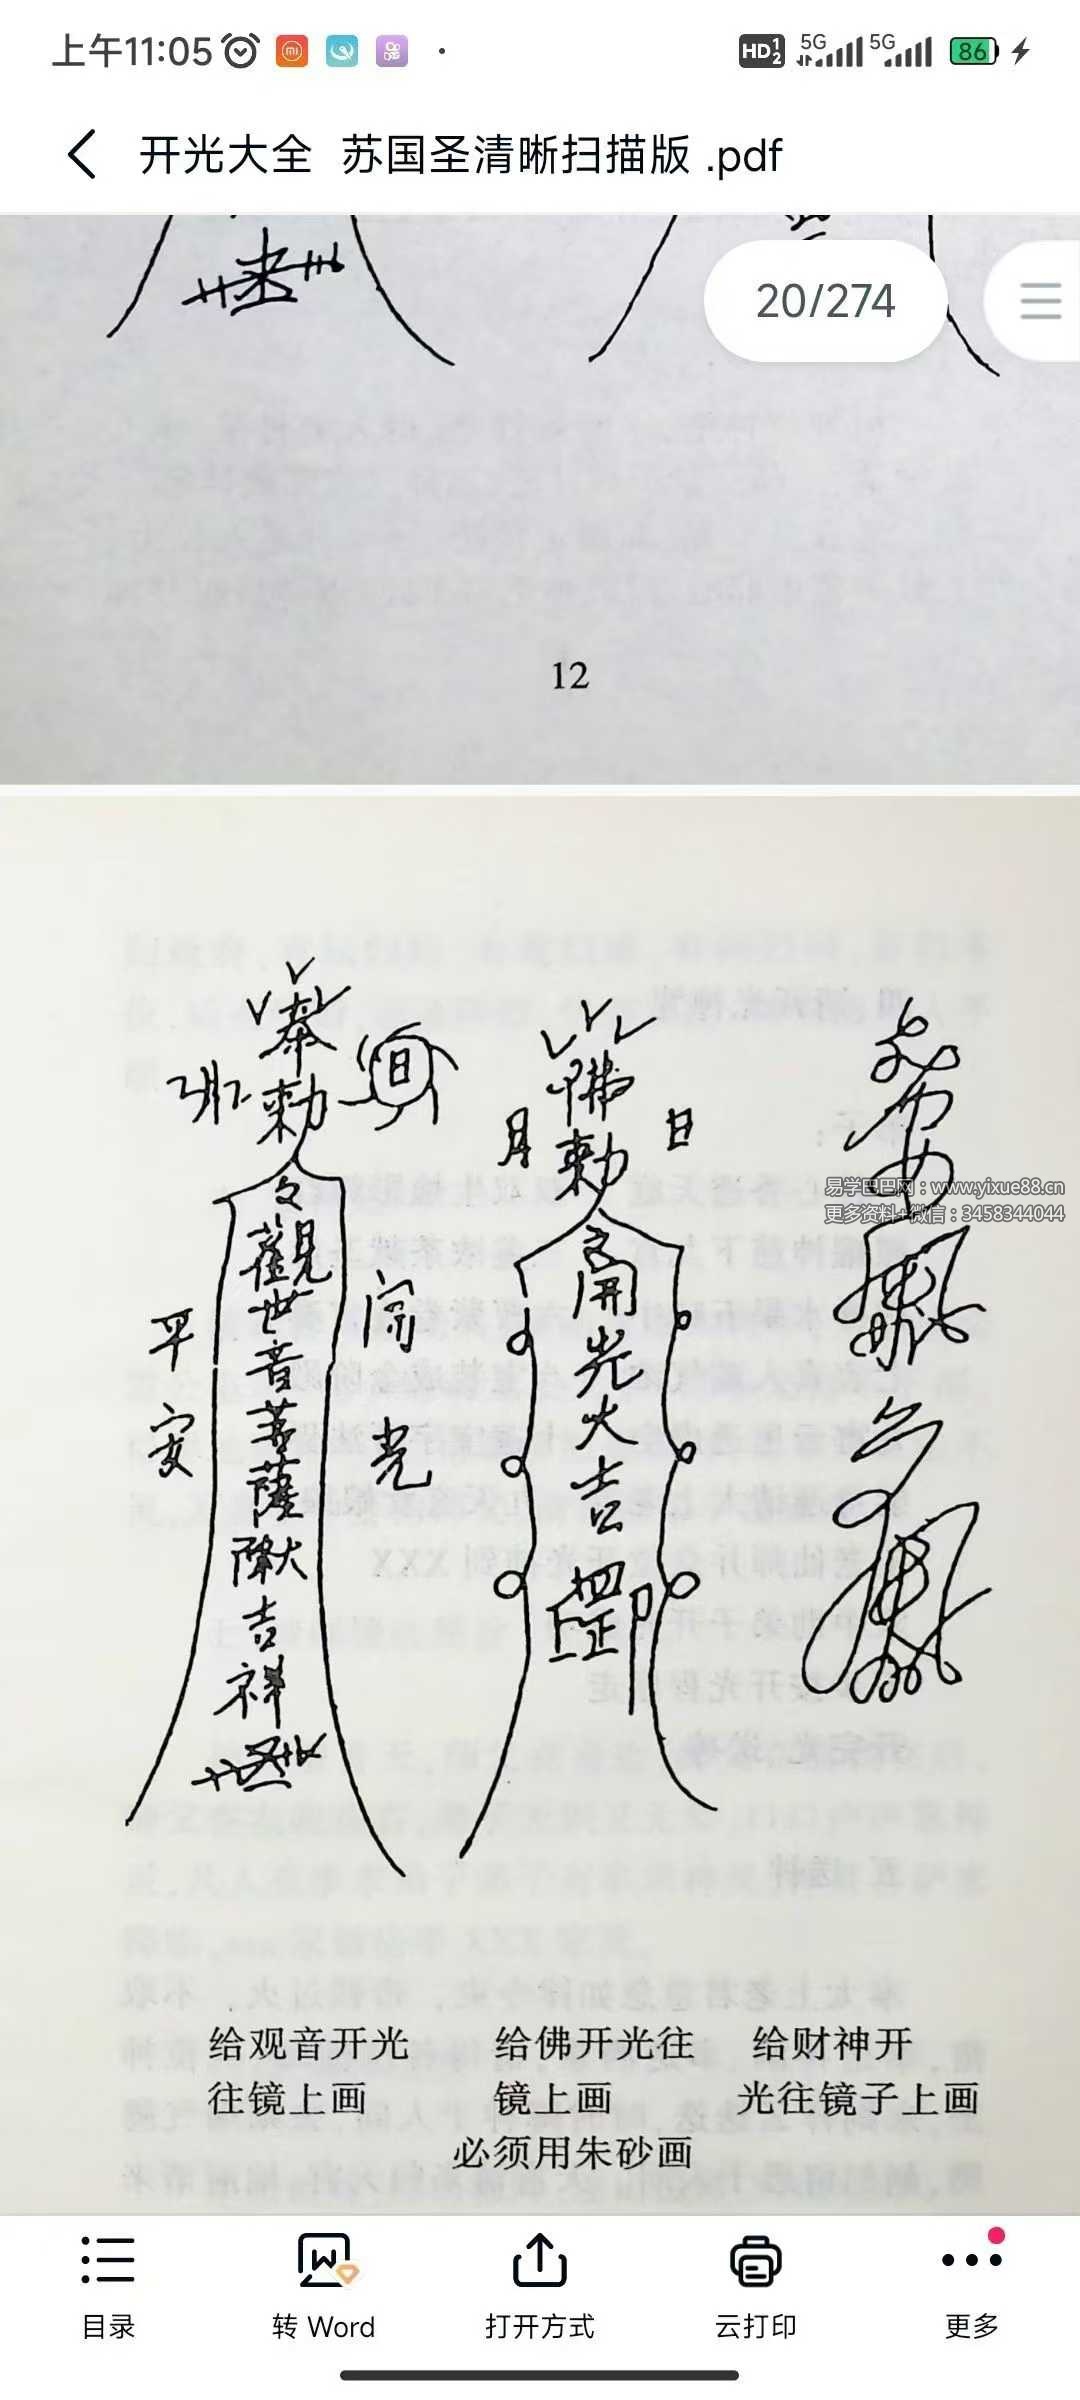 上午11:05
HD 1 2
5G
5G
86
开光大全 苏国圣清晰扫描版 .pdf
20/274
12
奉
勅
日
平
安
觀
世
音
菩
薩
吉
祥
开
光
佛
勅
月
日
開
光
大
吉
罡
印
易学巴巴网：www.yixue88.cn
更多资料+微信：3458344044
给观音开光
往镜上画
给佛开光往
镜上画
给财神开
光往镜子上画
必须用朱砂画
目录
转 Word
打开方式
云打印
更多